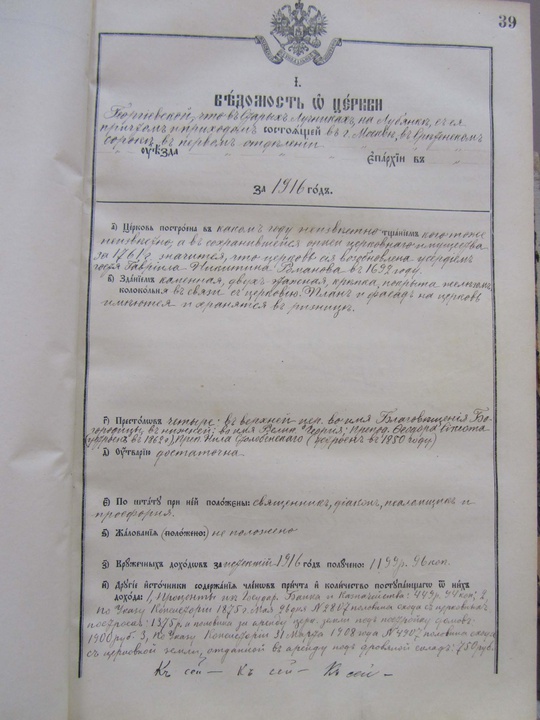 39
I.
ВѢДОМОСТЬ Ѡ ЦЕРКВИ
Георгіевской, что въ Старыхъ Лучникахъ, на Лубянкѣ, съ ея
причтомъ и приходомъ СОСТОЯЩЕЙ въ г. Москвѣ, въ Срѣтенскомъ
сорокѣ, въ первомъ отдѣленіи
ОУѢЗДА ЕПАРХІИ ВЪ
ЗА 1916 ГОДЪ.
а) Церковь построена въ какомъ году неизвѣстно тщаніемъ кого тоже
неизвѣстно, а въ сохранившейся описи церковнаго имущества
за 1761 г. значится, что церковь сія возобновлена усердіемъ
гостя Гавріила Никитина въ 1692 году.
в) Зданіемъ каменная, двухъ-этажная, крѣпка, покрыта желѣзомъ,
колокольня въ связи съ церковью. Планъ и фасадъ на церковь
имѣются и хранятся въ ризницѣ.
г) Престоловъ четыре: въ верхней цер. во имя Благовѣщенія Бо-
городицы, въ нижней: во имя Велик. Георгія; Препод. Ѳеодора
(устроенъ въ 1862 г.) Преп. Нила Столобенскаго (устроенъ въ 1850 году)
д) Оутварію достаточна
е) По штату при ней положены: священникъ, діаконъ, псаломщикъ и
просфорня.
ѕ) Жалованія (положено:) не положено
з) Кружечныхъ доходовъ за 1916 годъ получено: 1199 р. 96 коп.
и) Другіе источники содержанія членовъ причта и количество поступающаго ѿ нихъ
дохода: 1, Проценты изъ Государ. Банка и Казначейства: 449 р. 44 коп; 2,
По Указу Консисторіи 1875 г. Мая 26 дня № 2807 половина дохода съ церковныхъ
построекъ: 1375 р. а половина за аренду церк. земли подъ постройку домовъ:
1900 руб. 3, по Указу Консисторіи 31 Марта 1908 года № 4907 половина дохода
съ церковной земли, отданной въ аренду подъ дровяной складъ: 750 руб.
Къ сей — Къ сей — Къ сей —